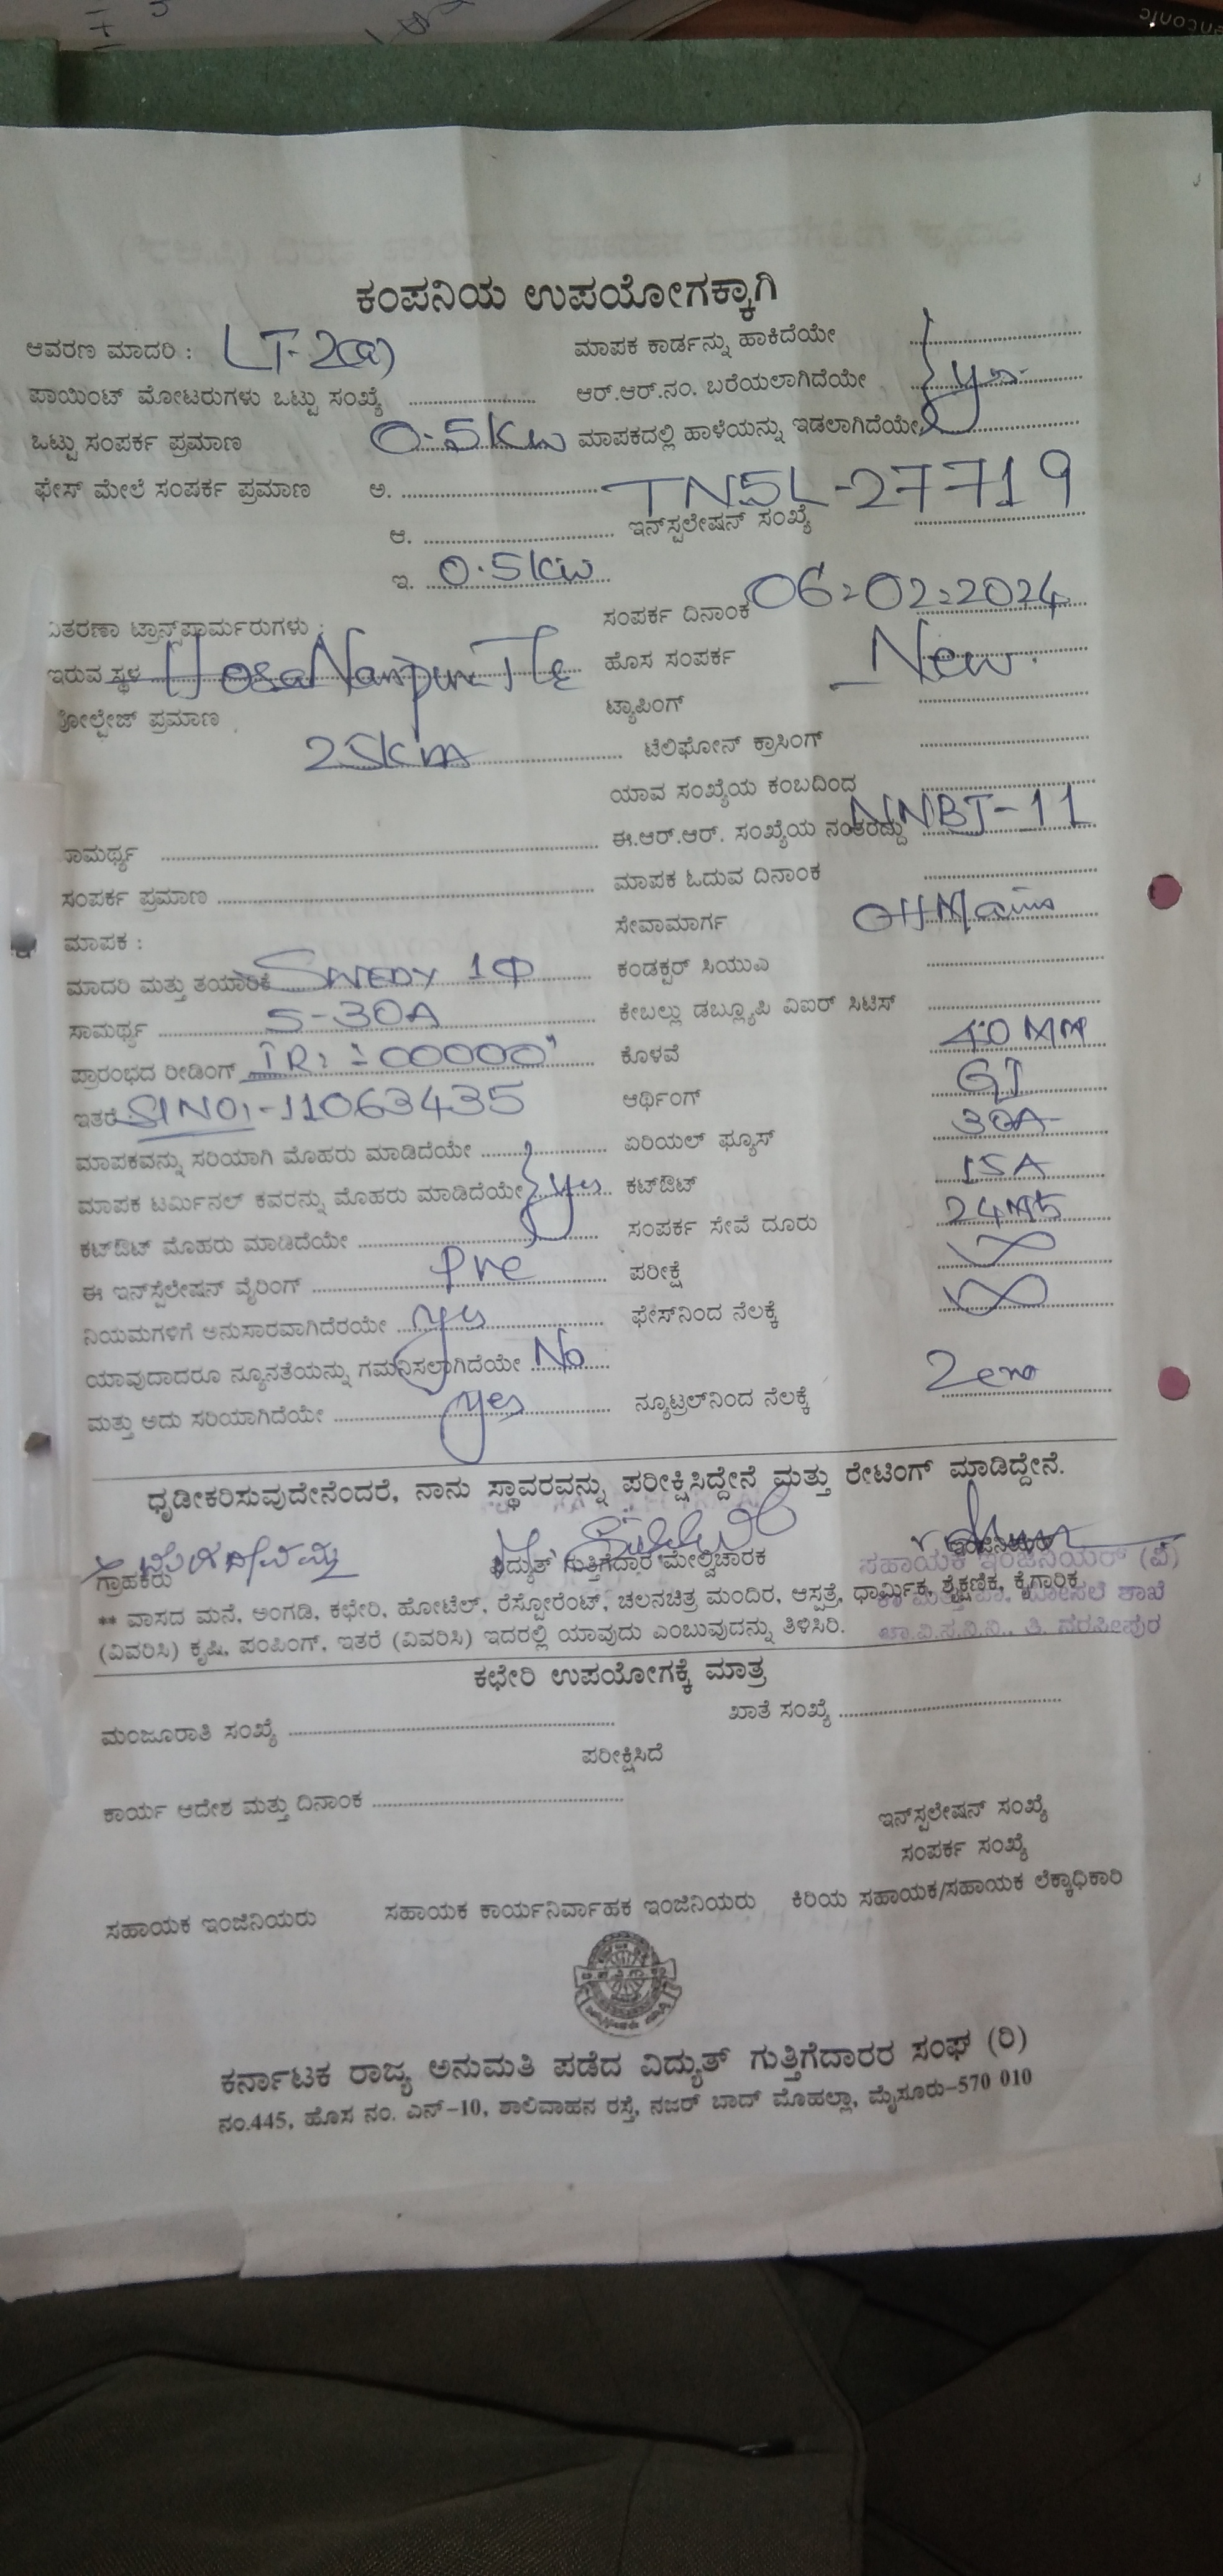 ಕಂಪನಿಯ ಉಪಯೋಗಕ್ಕಾಗಿ
ಆವರಣ ಮಾದರಿ : LT-2(a)
ಮಾಪಕ ಕಾರ್ಡನ್ನು ಹಾಕಿದೆಯೇ
ಪಾಯಿಂಟ್ ಮೋಟರುಗಳು ಒಟ್ಟು ಸಂಖ್ಯೆ
ಆರ್.ಆರ್.ನಂ. ಬರೆಯಲಾಗಿದೆಯೇ yes
ಒಟ್ಟು ಸಂಪರ್ಕ ಪ್ರಮಾಣ 0.5Kw
ಮಾಪಕದಲ್ಲಿ ಹಾಳೆಯನ್ನು ಇಡಲಾಗಿದೆಯೇ
ಫೇಸ್ ಮೇಲೆ ಸಂಪರ್ಕ ಪ್ರಮಾಣ ಅ.
TN5L-27719
ಆ.
ಇನ್‌ಸ್ಟಲೇಷನ್ ಸಂಖ್ಯೆ
ಇ. 0.5kw
ಸಂಪರ್ಕ ದಿನಾಂಕ 06:02:2024
ವಿತರಣಾ ಟ್ರಾನ್ಸ್‌ಫಾರ್ಮರುಗಳು :
ಇರುವ ಸ್ಥಳ
ಹೊಸ ಸಂಪರ್ಕ New
ವೋಲ್ಟೇಜ್ ಪ್ರಮಾಣ
ಟ್ಯಾಪಿಂಗ್
25
ಟೆಲಿಫೋನ್ ಕ್ರಾಸಿಂಗ್
ಯಾವ ಸಂಖ್ಯೆಯ ಕಂಬದಿಂದ
ಸಾಮರ್ಥ್ಯ
ಈ.ಆರ್.ಆರ್. ಸಂಖ್ಯೆಯ ನಂತರದ್ದು NNBT-11
ಸಂಪರ್ಕ ಪ್ರಮಾಣ
ಮಾಪಕ ಓದುವ ದಿನಾಂಕ
ಮಾಪಕ :
ಸೇವಾಮಾರ್ಗ OH Mains
ಮಾದರಿ ಮತ್ತು ತಯಾರಿಕೆ 1Φ
ಕಂಡಕ್ಟರ್ ಸಿಯುಎ
ಸಾಮರ್ಥ್ಯ 5-30A
ಕೇಬಲ್ಲು ಡಬ್ಲ್ಯೂಪಿ ವಿಐಆರ್ ಸಿಟಿಸ್
ಪ್ರಾರಂಭದ ರೀಡಿಂಗ್ IR:=00000"
ಕೊಳವೆ 40 MM
ಇತರೆ Sl NO:-11063435
ಆರ್ಥಿಂಗ್ GI
ಮಾಪಕವನ್ನು ಸರಿಯಾಗಿ ಮೊಹರು ಮಾಡಿದೆಯೇ
ಏರಿಯಲ್ ಫ್ಯೂಸ್ 30A
ಮಾಪಕ ಟರ್ಮಿನಲ್ ಕವರನ್ನು ಮೊಹರು ಮಾಡಿದೆಯೇ yes
ಕಟ್‌ಔಟ್ 15A
ಕಟ್‌ಔಟ್ ಮೊಹರು ಮಾಡಿದೆಯೇ
ಸಂಪರ್ಕ ಸೇವೆ ದೂರು
ಈ ಇನ್‌ಸ್ಟೆಲೇಷನ್ ವೈರಿಂಗ್ Pvc
ಪರೀಕ್ಷೆ ∞
ನಿಯಮಗಳಿಗೆ ಅನುಸಾರವಾಗಿದೆರಯೇ yes
ಫೇಸ್‌ನಿಂದ ನೆಲಕ್ಕೆ ∞
ಯಾವುದಾದರೂ ನ್ಯೂನತೆಯನ್ನು ಗಮನಿಸಲಾಗಿದೆಯೇ No
ಮತ್ತು ಅದು ಸರಿಯಾಗಿದೆಯೇ yes
ನ್ಯೂಟ್ರಲ್‌ನಿಂದ ನೆಲಕ್ಕೆ Zero
ಧೃಡೀಕರಿಸುವುದೇನೆಂದರೆ, ನಾನು ಸ್ಥಾವರವನ್ನು ಪರೀಕ್ಷಿಸಿದ್ದೇನೆ ಮತ್ತು ರೇಟಿಂಗ್ ಮಾಡಿದ್ದೇನೆ.
ಗ್ರಾಹಕರು
ವಿದ್ಯುತ್ ಗುತ್ತಿಗೆದಾರ ಮೇಲ್ವಿಚಾರಕ
ಸಹಾಯಕ ಇಂಜಿನಿಯರ್ (ವಿ)
** ವಾಸದ ಮನೆ, ಅಂಗಡಿ, ಕಛೇರಿ, ಹೋಟೆಲ್, ರೆಸ್ಟೋರೆಂಟ್, ಚಲನಚಿತ್ರ ಮಂದಿರ, ಆಸ್ಪತ್ರೆ, ಧಾರ್ಮಿಕ, ಶೈಕ್ಷಣಿಕ, ಕೈಗಾರಿಕ
(ವಿವರಿಸಿ) ಕೃಷಿ, ಪಂಪಿಂಗ್, ಇತರೆ (ವಿವರಿಸಿ) ಇದರಲ್ಲಿ ಯಾವುದು ಎಂಬುವುದನ್ನು ತಿಳಿಸಿರಿ.
ಚಾ.ವಿ.ಸ.ನಿ.ನಿ., ತಿ. ನರಸೀಪುರ
ಕಛೇರಿ ಉಪಯೋಗಕ್ಕೆ ಮಾತ್ರ
ಮಂಜೂರಾತಿ ಸಂಖ್ಯೆ
ಖಾತೆ ಸಂಖ್ಯೆ
ಪರೀಕ್ಷಿಸಿದೆ
ಕಾರ್ಯ ಆದೇಶ ಮತ್ತು ದಿನಾಂಕ
ಇನ್‌ಸ್ಟಲೇಷನ್ ಸಂಖ್ಯೆ
ಸಂಪರ್ಕ ಸಂಖ್ಯೆ
ಸಹಾಯಕ ಇಂಜಿನಿಯರು ಸಹಾಯಕ ಕಾರ್ಯನಿರ್ವಾಹಕ ಇಂಜಿನಿಯರು ಕಿರಿಯ ಸಹಾಯಕ/ಸಹಾಯಕ ಲೆಕ್ಕಾಧಿಕಾರಿ
ಕರ್ನಾಟಕ ರಾಜ್ಯ ಅನುಮತಿ ಪಡೆದ ವಿದ್ಯುತ್ ಗುತ್ತಿಗೆದಾರರ ಸಂಘ (ರಿ)
ನಂ.445, ಹೊಸ ನಂ. ಎನ್-10, ಶಾಲಿವಾಹನ ರಸ್ತೆ, ನಜರ್ ಬಾದ್ ಮೊಹಲ್ಲಾ, ಮೈಸೂರು-570 010